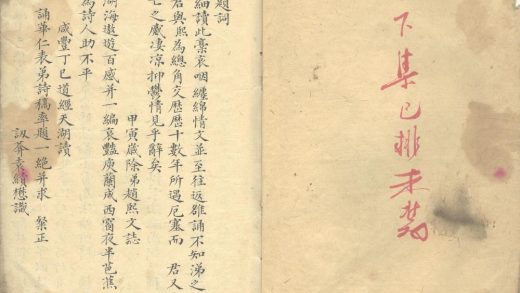 下集已排未裝
題詞
細讀此稾哀咽纏綿情文並至往返雒誦不知涕之
君與熙為總角交歷歷十數年所遇厄塞而 君又
之戚淒涼抑鬱情見乎辭矣
甲寅歲除弟趙熙文誌
湖海遨遊百感并一編哀豔庾蘭成西窗夜半芭蕉
為詩人助不平
咸豐丁巳道經天湖讀
誦華仁表弟詩稿率題一絕并求 正
訒菴袁績懋識